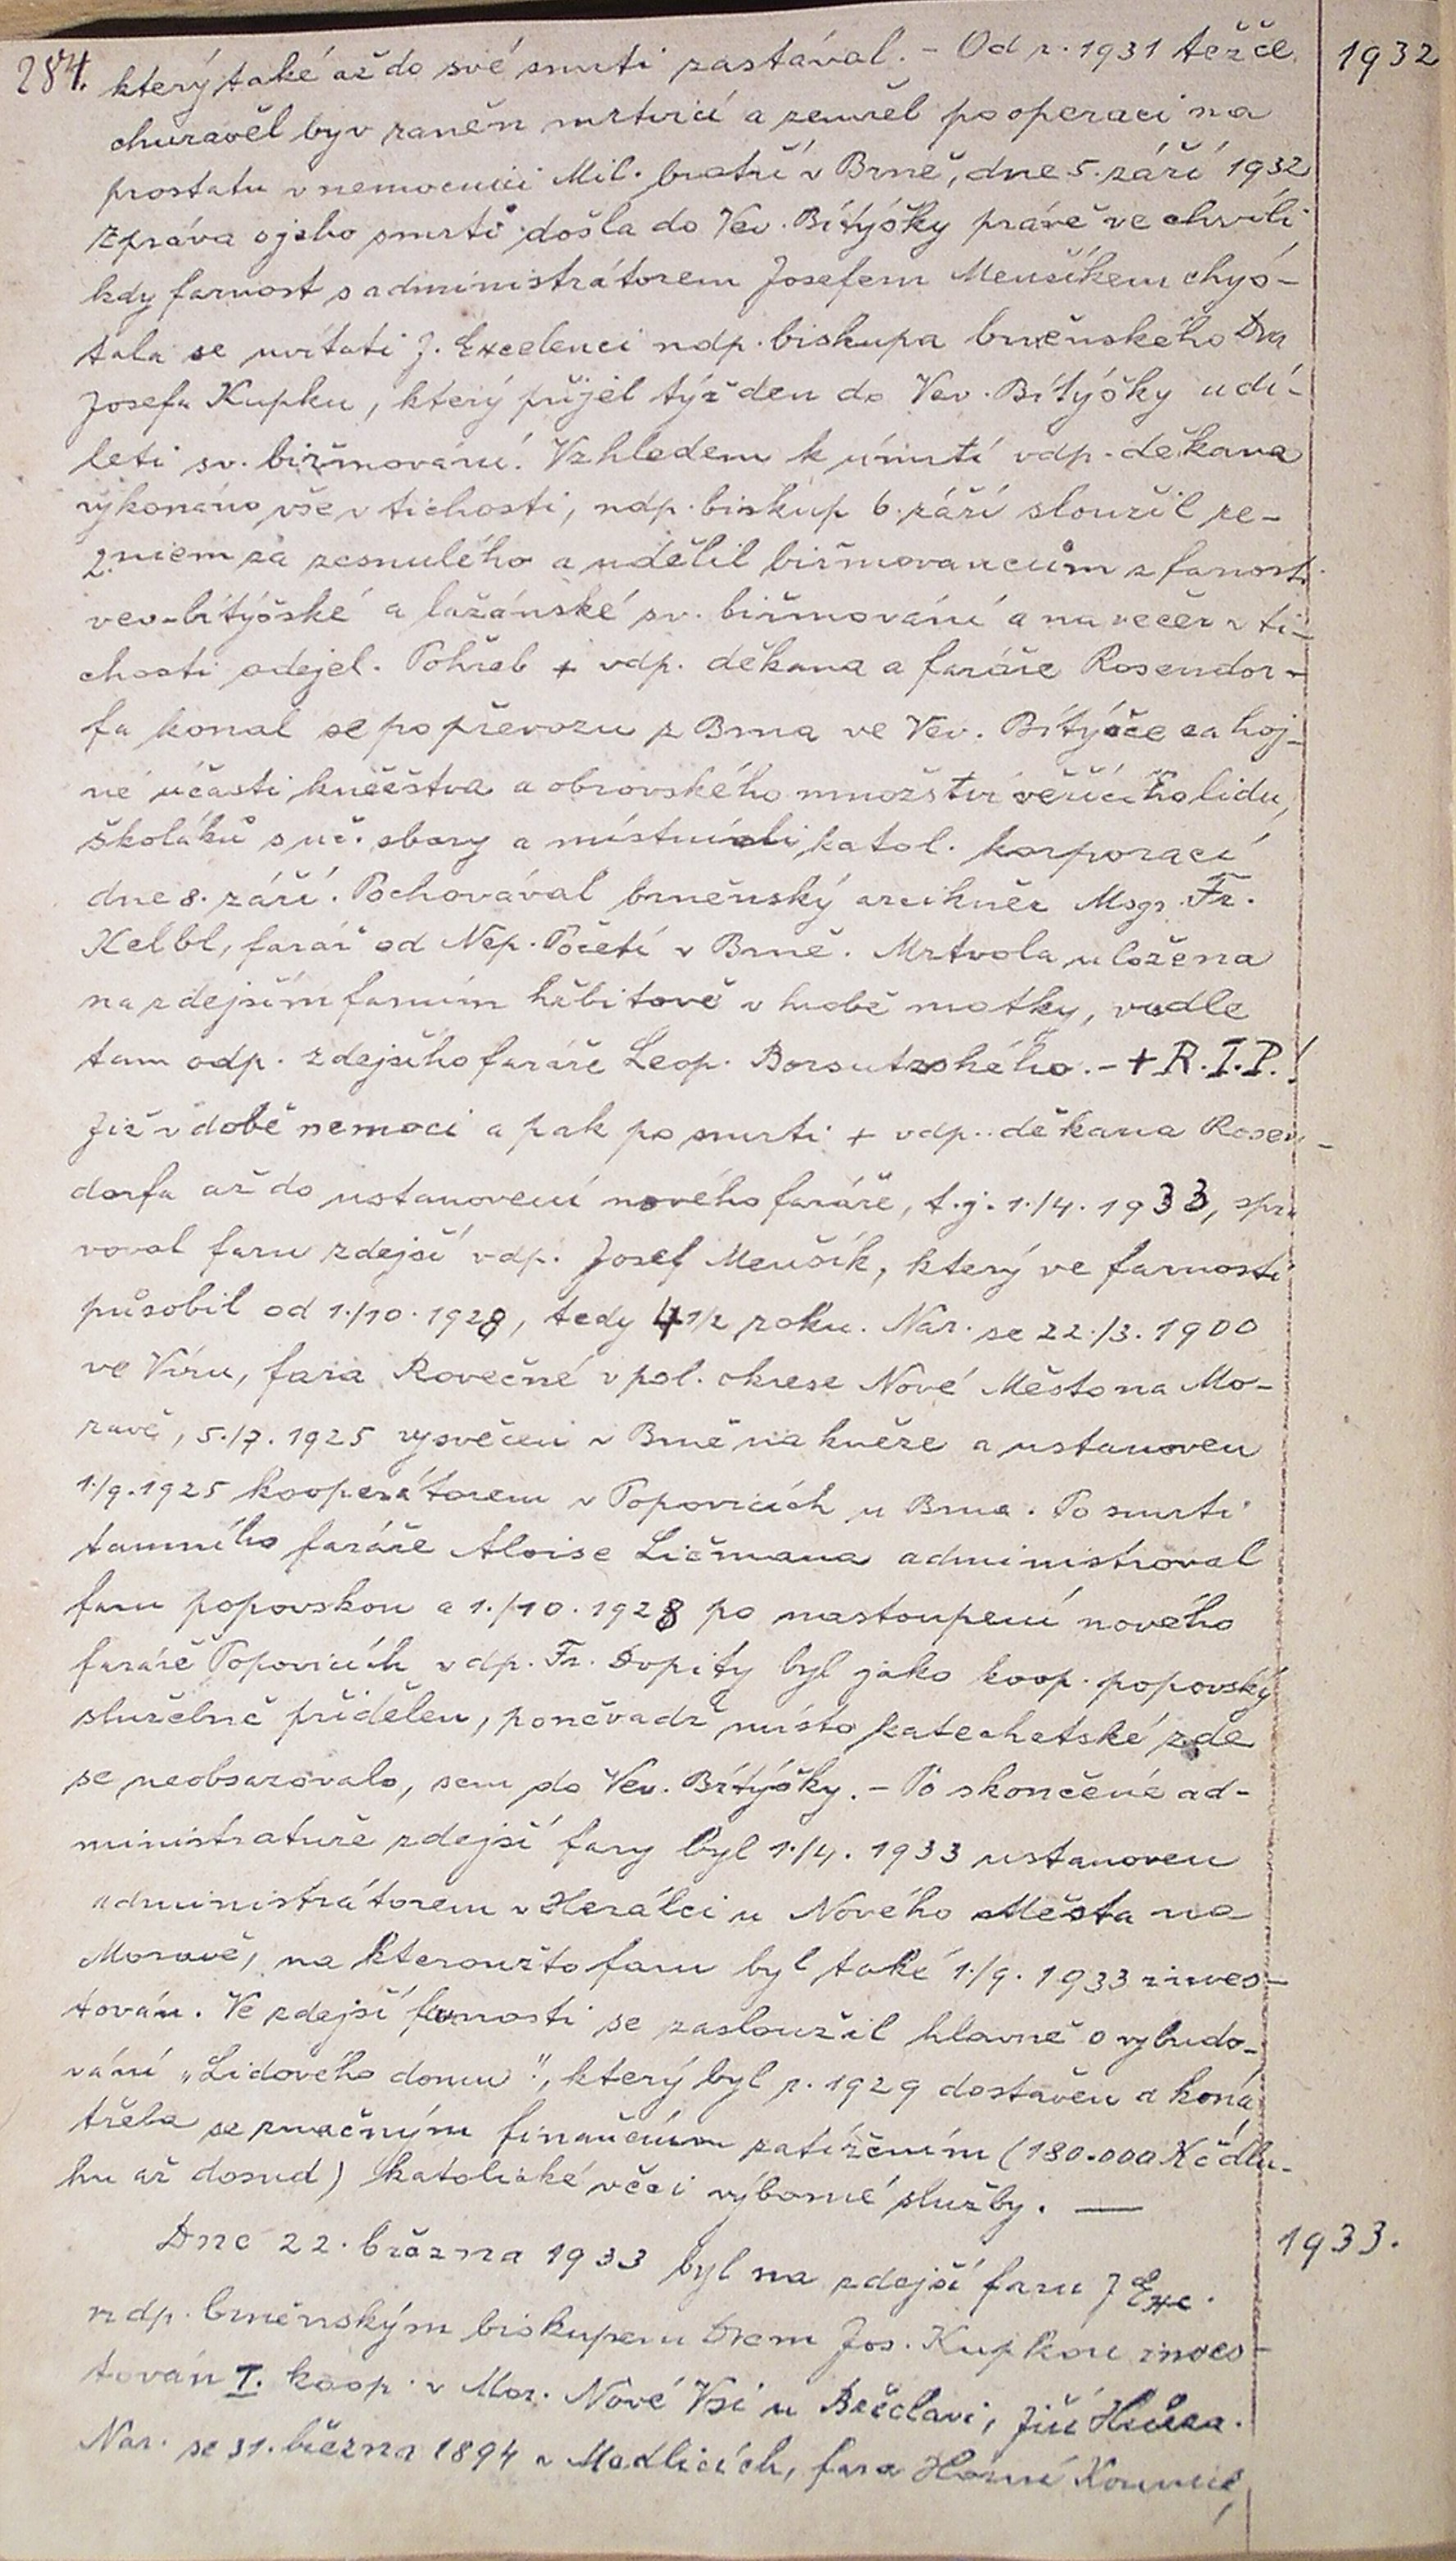 284. který také až do své smrti zastával. – Od r. 1931 těžce 1932
churavěl byv raněn mrtvicí a zemřel po operaci na
prostatu v nemocnici Mil. bratří v Brně, dne 5. září 1932
Zpráva o jeho smrti došla do Vev. Bítýšky právě ve chvíli
kdy farnost s administrátorem Josefem Menšíkem chys-
tala se uvítati J. Excelenci ndp. biskupa brněnského Dra
Josefa Kupku, který přijel týž den do Vev. Bítýšky udí-
leti sv. biřmování. Vzhledem k úmrtí vdp. děkana
vykonáno vše v tichosti, ndp. biskup 6. září sloužil re-
quiem za zesnulého a udělil biřmovancům z farnosti
vev-bítýšské a lažánské sv. biřmování a na večer v ti-
chosti odejel. Pohřeb + vdp. děkana a faráře Rosendor-
fa konal se po převozu z Brna ve Vev. Bítýšce za hoj-
né účasti kněžstva a obrovského množství věřícího lidu,
školáků s uč. sbory a místních katol. korporací
dne 8. září. Pochovával brněnský arcikněz Msgr. Fr.
Kelbl, farář od Nep. Početí v Brně. Mrtvola uložena
na zdejším farním hřbitově v hrobě matky, vedle
tam odp. zdejšího faráře Leop. Borsutzského. – + R.I.P.!
Již v době nemoci a pak po smrti + vdp. děkana Rosen-
dorfa až do ustanovení nového faráře, t.j. 1./4. 1933, spra
voval faru zdejší vdp. Josef Menšík, který ve farnosti
působil od 1./10. 1928, tedy 4 1/2 roku. Nar. se 22./3. 1900
ve Víru, fara Rovečné v pol. okrese Nové Město na Mo-
ravě, 5./7. 1925 vysvěcen v Brně na kněze a ustanoven
1./9. 1925 kooperátorem v Popovicích u Brna. Po smrti
tamního faráře Aloise Ličmana administroval
faru popovskou a 1./10. 1928 po nastoupení nového
faráře Popovicích vdp. Fr. Dopity byl jako koop. popovský
služebně přidělen, poněvadž místo katechetské zde
se neobsazovalo, sem do Vev. Bítýšky. – Po skončené ad-
ministratuře zdejší fary byl 1./4. 1933 ustanoven
administrátorem v Herálci u Nového Města na
Moravě, na kteroužto faru byl také 1./9. 1933 inves-
tován. Ve zdejší farnosti se zasloužil hlavně o vybudo-
vání „Lidového domu", který byl r. 1929 dostavěn a koná
třeba se značným finančním zatížením (180.000 Kč dlu-
hu až dosud) katolické věci výborné služby. —
Dne 22. března 1933 byl na zdejší faru J Exc. 1933.
ndp. brněnským biskupem Drem Jos. Kupkou inves-
tován I. koop. v Mor. Nové Vsi u Břeclavi, Jiří
Nar. se 31. března 1894 v Madlicích, fara Horní Kounice,